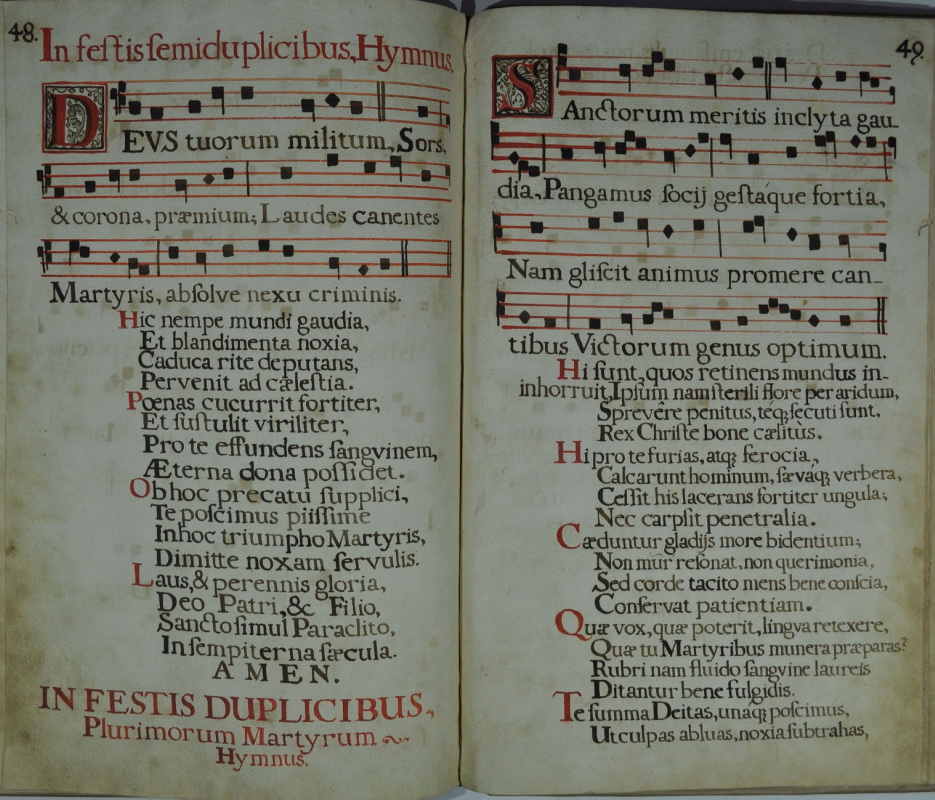 48.
In festis semiduplicibus, Hymnus.
DEVS tuorum militum, Sors,
& corona, præmium; Laudes canentes
Martyris, absolve nexu criminis.
Hic nempe mundi gaudia,
Et blandimenta noxia,
Caduca rite deputans,
Pervenit ad cælestia.
Pœnas cucurrit fortiter,
Et sustulit viriliter,
Pro te effundens sangvinem,
Æterna dona possidet.
Ob hoc precatu supplici,
Te poscimus piissime
In hoc triumpho Martyris,
Dimitte noxam servulis.
Laus, & perennis gloria,
Deo Patri, & Filio,
Sancto simul Paraclito,
In sempiterna sæcula.
AMEN.
IN FESTIS DUPLICIBUS,
Plurimorum Martyrum
Hymnus.
49.
SAnctorum meritis inclyta gau-
dia, Pangamus socij gestáque fortia,
Nam gliscit animus promere can-
tibus Victorum genus optimum.
Hi sunt, quos retinens mundus in-
inhorruit, Ipsum nam sterili flore per aridum,
Sprevêre penitus, teq; secuti sunt,
Rex Christe bone cælitùs.
Hi pro te furias, atq; ferocia,
Calcarunt hominum, sævaq; verbera,
Cessit his lacerans fortiter ungula;
Nec carpsit penetralia.
Cæduntur gladijs more bidentium;
Non mur resonat, non querimonia,
Sed corde tacito mens bene conscia,
Conservat patientiam.
Quæ vox, quæ poterit, lingva retexere,
Quæ tu Martyribus munera præparas?
Rubri nam fluido sangvine laureis
Ditantur bene fulgidis.
Te summa Deitas, unaq; poscimus,
Ut culpas abluas, noxia subtrahas,